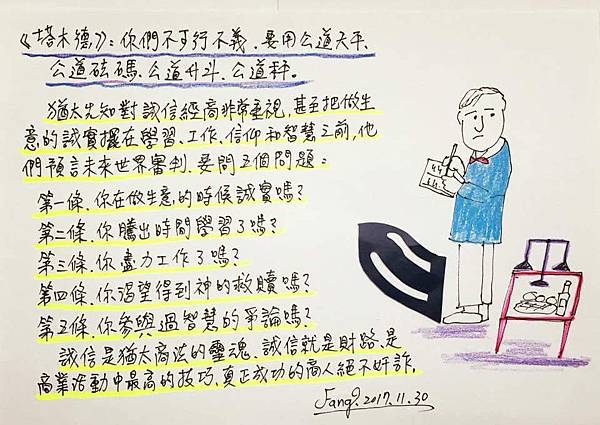 《塔木德》：你們不可行不義、要用公道天平、
公道砝碼、公道升斗、公道秤。
猶太先知對誠信經商非常重視，甚至把做生
意的誠實擺在學習、工作、信仰和智慧之前，他
們預言未來世界審判、要問五個問題：
第一條、你在做生意的時候誠實嗎？
第二條、你騰出時間學習了嗎？
第三條、你盡力工作了嗎？
第四條、你渴望得到神的救贖嗎？
第五條、你參與過智慧的爭論嗎？
誠信是猶太商法的靈魂、誠信就是財路、是
商業活動中最高的技巧、真正成功的商人絕不奸詐。
Fang. 2017.11.30